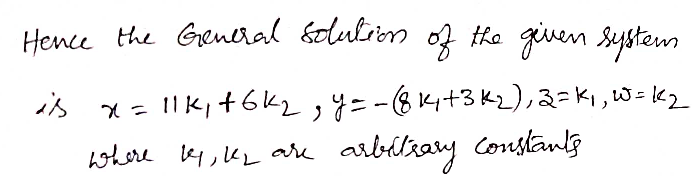 Hence the General Solution of the given system
is x = 11k₁ + 6k₂ , y = -(8k₁+3k₂), z = k₁, w = k₂
where k₁, k₂ are arbitrary constants